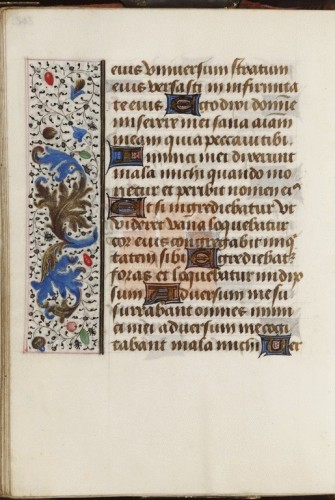 eius vniuersum stratum
eius versasti in infirmita
te eius Ego dixi domine
miserere mei sana animam
meam quia peccaui tibi
Inimici mei dixerunt
mala michi quando mo
rietur et peribit nomen eius
Et si ingrediebatur vt
videret vana loquebatur
cor eius congregabit iniqui
tatem sibi Egrediebatur
foras et loquebatur in idip
sum Aduersum me su
surrabant omnes inimi
ci mei aduersum me cogi
tabant mala michi Uer